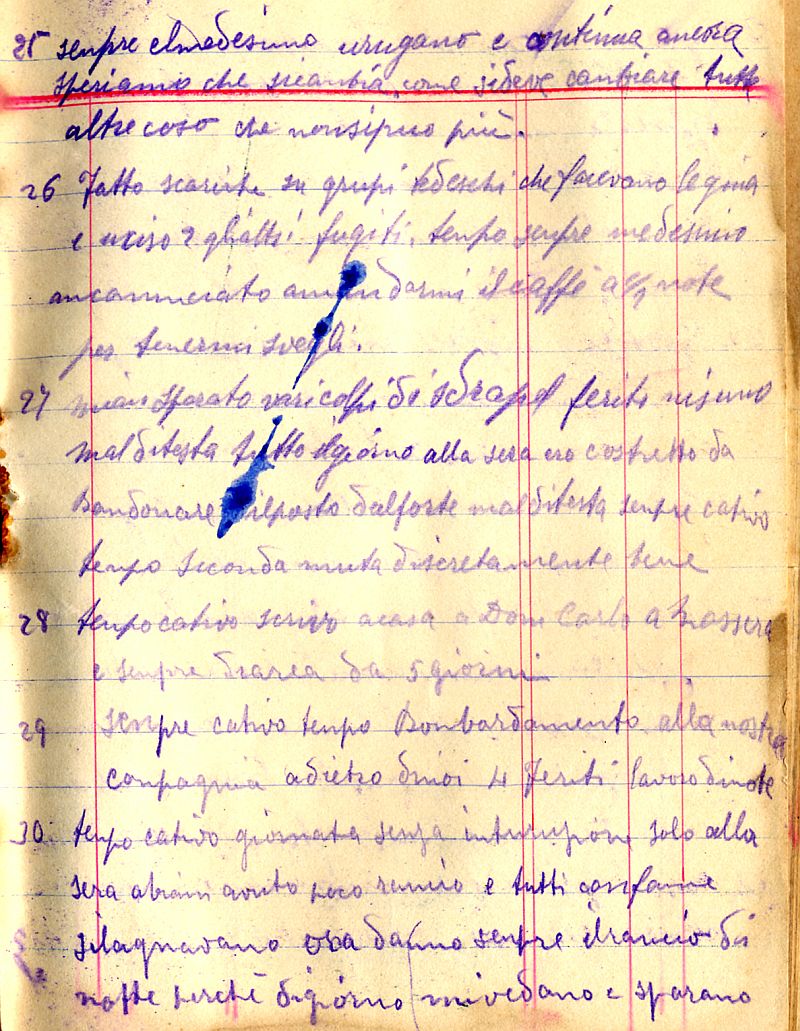 25 senpre elmedesimo urugano e continua ancora
speriamo che sicanbia come sideve canbiare tutto
altre coso che nonsipuo più.
26 Fatto scariche su grupi tedeschi che facevano legnia
e uciso 2 gli altri fugiti. tenpo senpre medesimo
ancominciato amandarmi il caffè a ½ note
per tenermi svegli.
27 sparato vari colpi di sdrapel feriti nisuno
mal ditesta tutto ilgiorno alla sera ero costretto da
Bandonare ilposto dalforte mal ditesta senpre cativo
tenpo seconda muta discretamente bene
28 tenpo cativo scrivo acasa a Don Carlo a Massera
e senpre diarea da 5 giorni
29 senpre cativo tenpo Bonbardamento alla nostra
conpagnia adietro dinoi 4 Feriti lavoro dinote
30 tenpo cativo giornata senza interuzione solo alla
sera abiami avuto poco rancio e tutti con fame
silagnavano ora danno senpre il rancio di
notte perchè digiorno mivedano e sparano